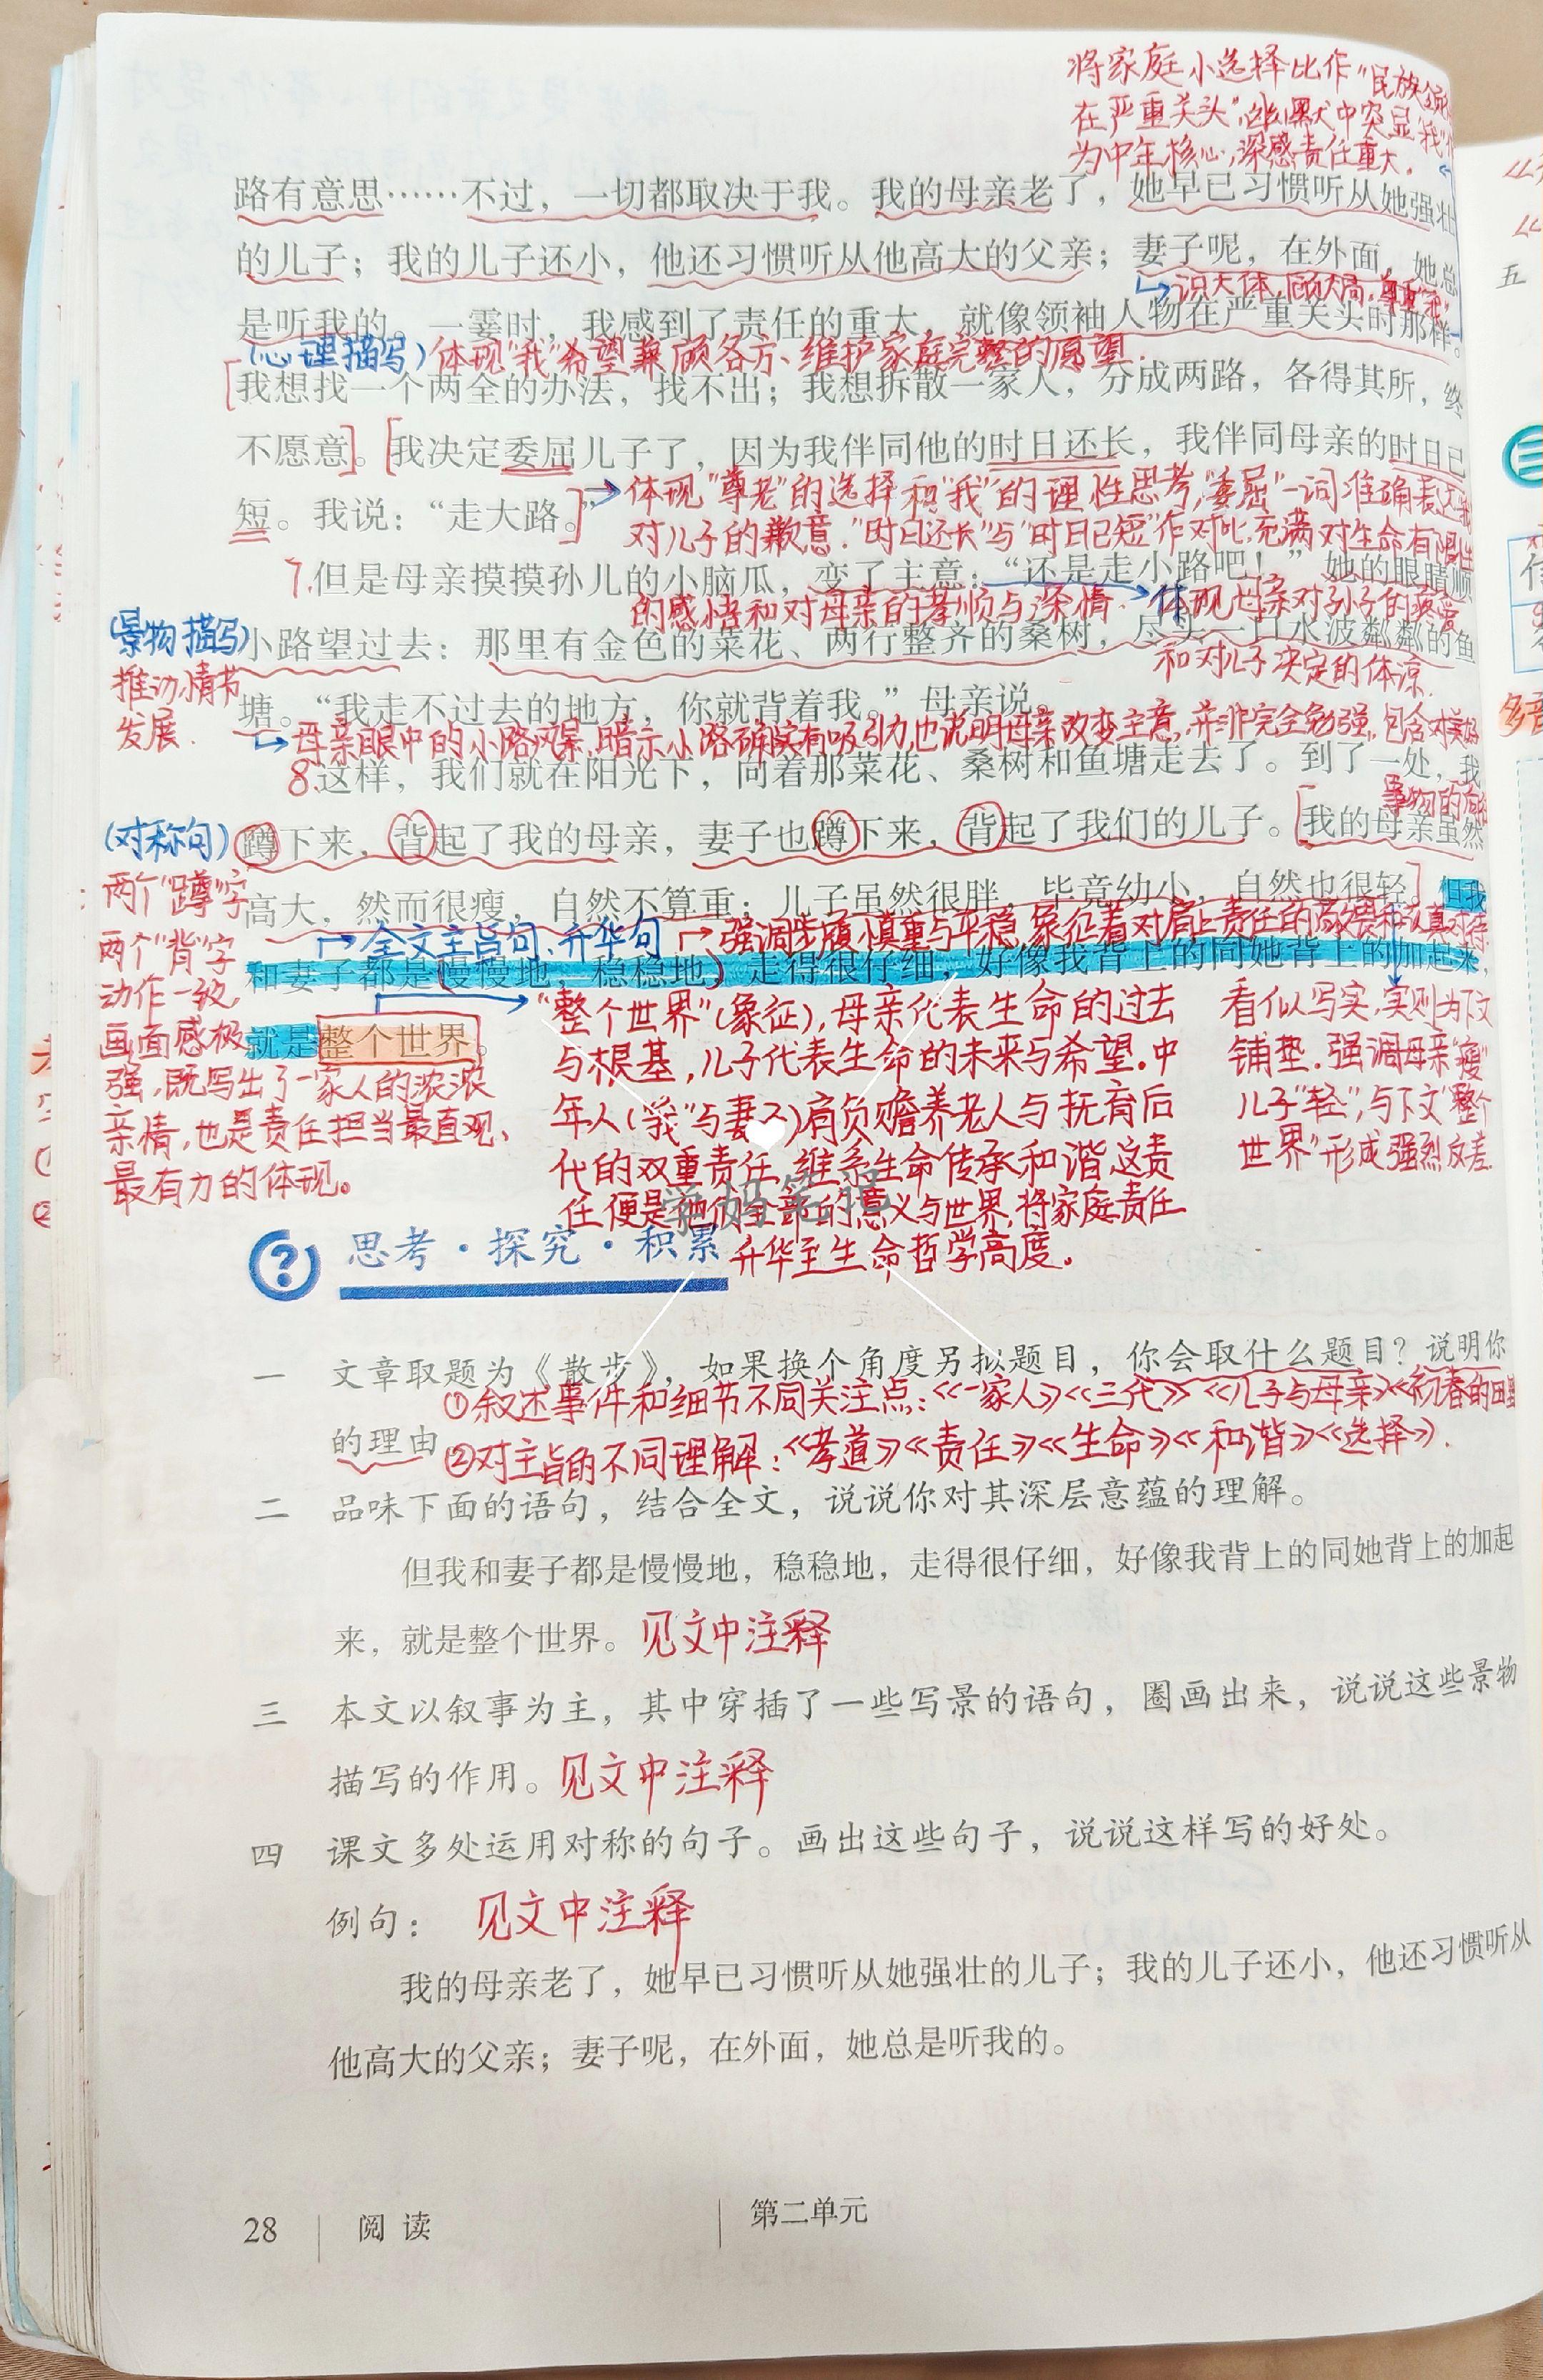 将家庭小选择比作“民族领袖
在严重关头”,幽默中突显“我”作
为中年核心,深感责任重大。
路有意思……不过，一切都取决于我。我的母亲老了，她早已习惯听从她强壮
的儿子；我的儿子还小，他还习惯听从他高大的父亲；妻子呢，在外面，她总
识大体、顾大局、尊重“我”
是听我的。一霎时，我感到了责任的重大，就像领袖人物在严重关头时那样。
(心理描写)体现“我”希望兼顾各方、维护家庭完整的愿望.
我想找一个两全的办法，找不出；我想拆散一家人，分成两路，各得其所，终
不愿意。我决定委屈儿子了，因为我伴同他的时日还长，我伴同母亲的时日已
短。我说：“走大路。”
体现“尊老”的选择和“我”的理性思考,“委屈”一词准确表达我
对儿子的歉意.“时日还长”与“时日已短”作对比,充满对生命有限性
的感悟和对母亲的孝顺与深情.
7.但是母亲摸摸孙儿的小脑瓜，变了主意：“还是走小路吧！”她的眼睛顺
体现母亲对孙子的疼爱
和对儿子决定的体谅.
(景物描写)
推动情节
发展.
小路望过去：那里有金色的菜花、两行整齐的桑树，尽头一口水波粼粼的鱼
塘。“我走不过去的地方，你就背着我。”母亲说。
母亲眼中的小路风景,暗示小路确实有吸引力,也说明母亲改变主意,并非完全勉强,包含对美好
事物的向往
8.这样，我们就在阳光下，向着那菜花、桑树和鱼塘走去了。到了一处，我
蹲下来，背起了我的母亲，妻子也蹲下来，背起了我们的儿子。我的母亲虽然
高大，然而很瘦，自然不算重；儿子虽然很胖，毕竟幼小，自然也很轻。但我
全文主旨句、升华句
强调步履慎重与平稳,象征着对肩上责任的敬畏和认真对待
和妻子都是慢慢地，稳稳地，走得很仔细，好像我背上的同她背上的加起来，
就是整个世界。
(对称句)
两个“蹲”字
两个“背”字
动作一致,
画面感极
强,既写出了一家人的浓浓
亲情,也是责任担当最直观、
最有力的体现。
“整个世界”(象征),母亲代表生命的过去
与根基,儿子代表生命的未来与希望.中
年人(“我”与妻子)肩负赡养老人与抚育后
代的双重责任,维系生命传承和谐,这责
任便是他们全部的意义与世界,将家庭责任
升华至生命哲学高度。
看似写实,实则为下文
铺垫.强调母亲“瘦”
儿子“轻”,与下文“整个
世界”形成强烈反差.
学妈笔记
思考·探究·积累
一 文章取题为《散步》，如果换个角度另拟题目，你会取什么题目？说明你
的理由
①叙述事件和细节不同关注点:《一家人》《三代》《儿子与母亲》《初春的田野
②对主旨的不同理解:《孝道》《责任》《生命》《和谐》《选择》.
二 品味下面的语句，结合全文，说说你对其深层意蕴的理解。
但我和妻子都是慢慢地，稳稳地，走得很仔细，好像我背上的同她背上的加起
来，就是整个世界。见文中注释
三 本文以叙事为主，其中穿插了一些写景的语句，圈画出来，说说这些景物
描写的作用。见文中注释
四 课文多处运用对称的句子。画出这些句子，说说这样写的好处。
例句： 见文中注释
我的母亲老了，她早已习惯听从她强壮的儿子；我的儿子还小，他还习惯听从
他高大的父亲；妻子呢，在外面，她总是听我的。
28 阅读 第二单元
五